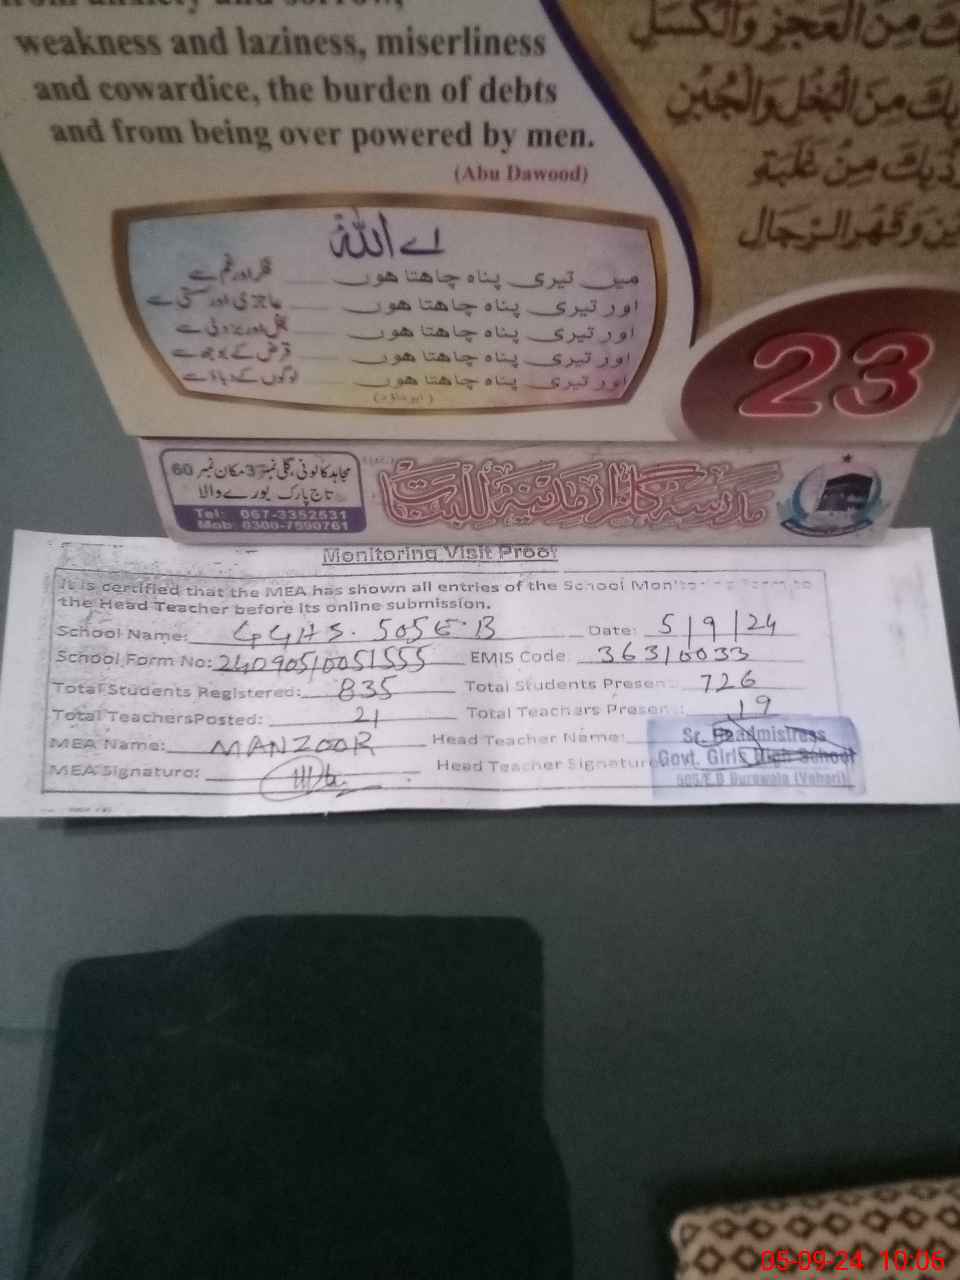 weakness and laziness, miserliness
and cowardice, the burden of debts
and from being over powered by men.
(Abu Dawood)
مِنَ الْعَجْزِ وَالْكَسَلِ
مِنَ الْبُخْلِ وَالْجُبْنِ
مِنْ غَلَبَةِ
وَقَهْرِ الرِّجَالِ
اے اللہ
میں تیری پناہ چاهتا هوں ____ فکر اور غم سے
اور تیری پناہ چاهتا هوں ____ عاجزی اور سستی سے
اور تیری پناہ چاهتا هوں ____ بخل اور بزدلی سے
اور تیری پناہ چاهتا هوں ____ قرض کے بوجھ سے
اور تیری پناہ چاهتا هوں ____ لوگوں کے دباؤ سے
(ابوداؤد)
23
مجاہد کالونی، گلی نمبر 3 مکان نمبر 60
تاج پارک بورے والا
Tel: 067-3352531
Mob: 0300-7590761
مدرسہ گلزار مدینہ للبنات
Monitoring Visit Proof
It is certified that the MEA has shown all entries of the School Monitoring Form to
the Head Teacher before its online submission.
School Name: GGHS. 505 E.B Date: 5/9/24
School Form No: 24090510051555 EMIS Code: 36310033
Total Students Registered: 835 Total Students Present: 726
Total Teachers Posted: 21 Total Teachers Present: 19
MEA Name: MANZOOR Head Teacher Name:
MEA Signature: Head Teacher Signature
Sr. Headmistress
Govt. Girls High School
505/E.B Burewala (Vehari)
05-09-24 10:06